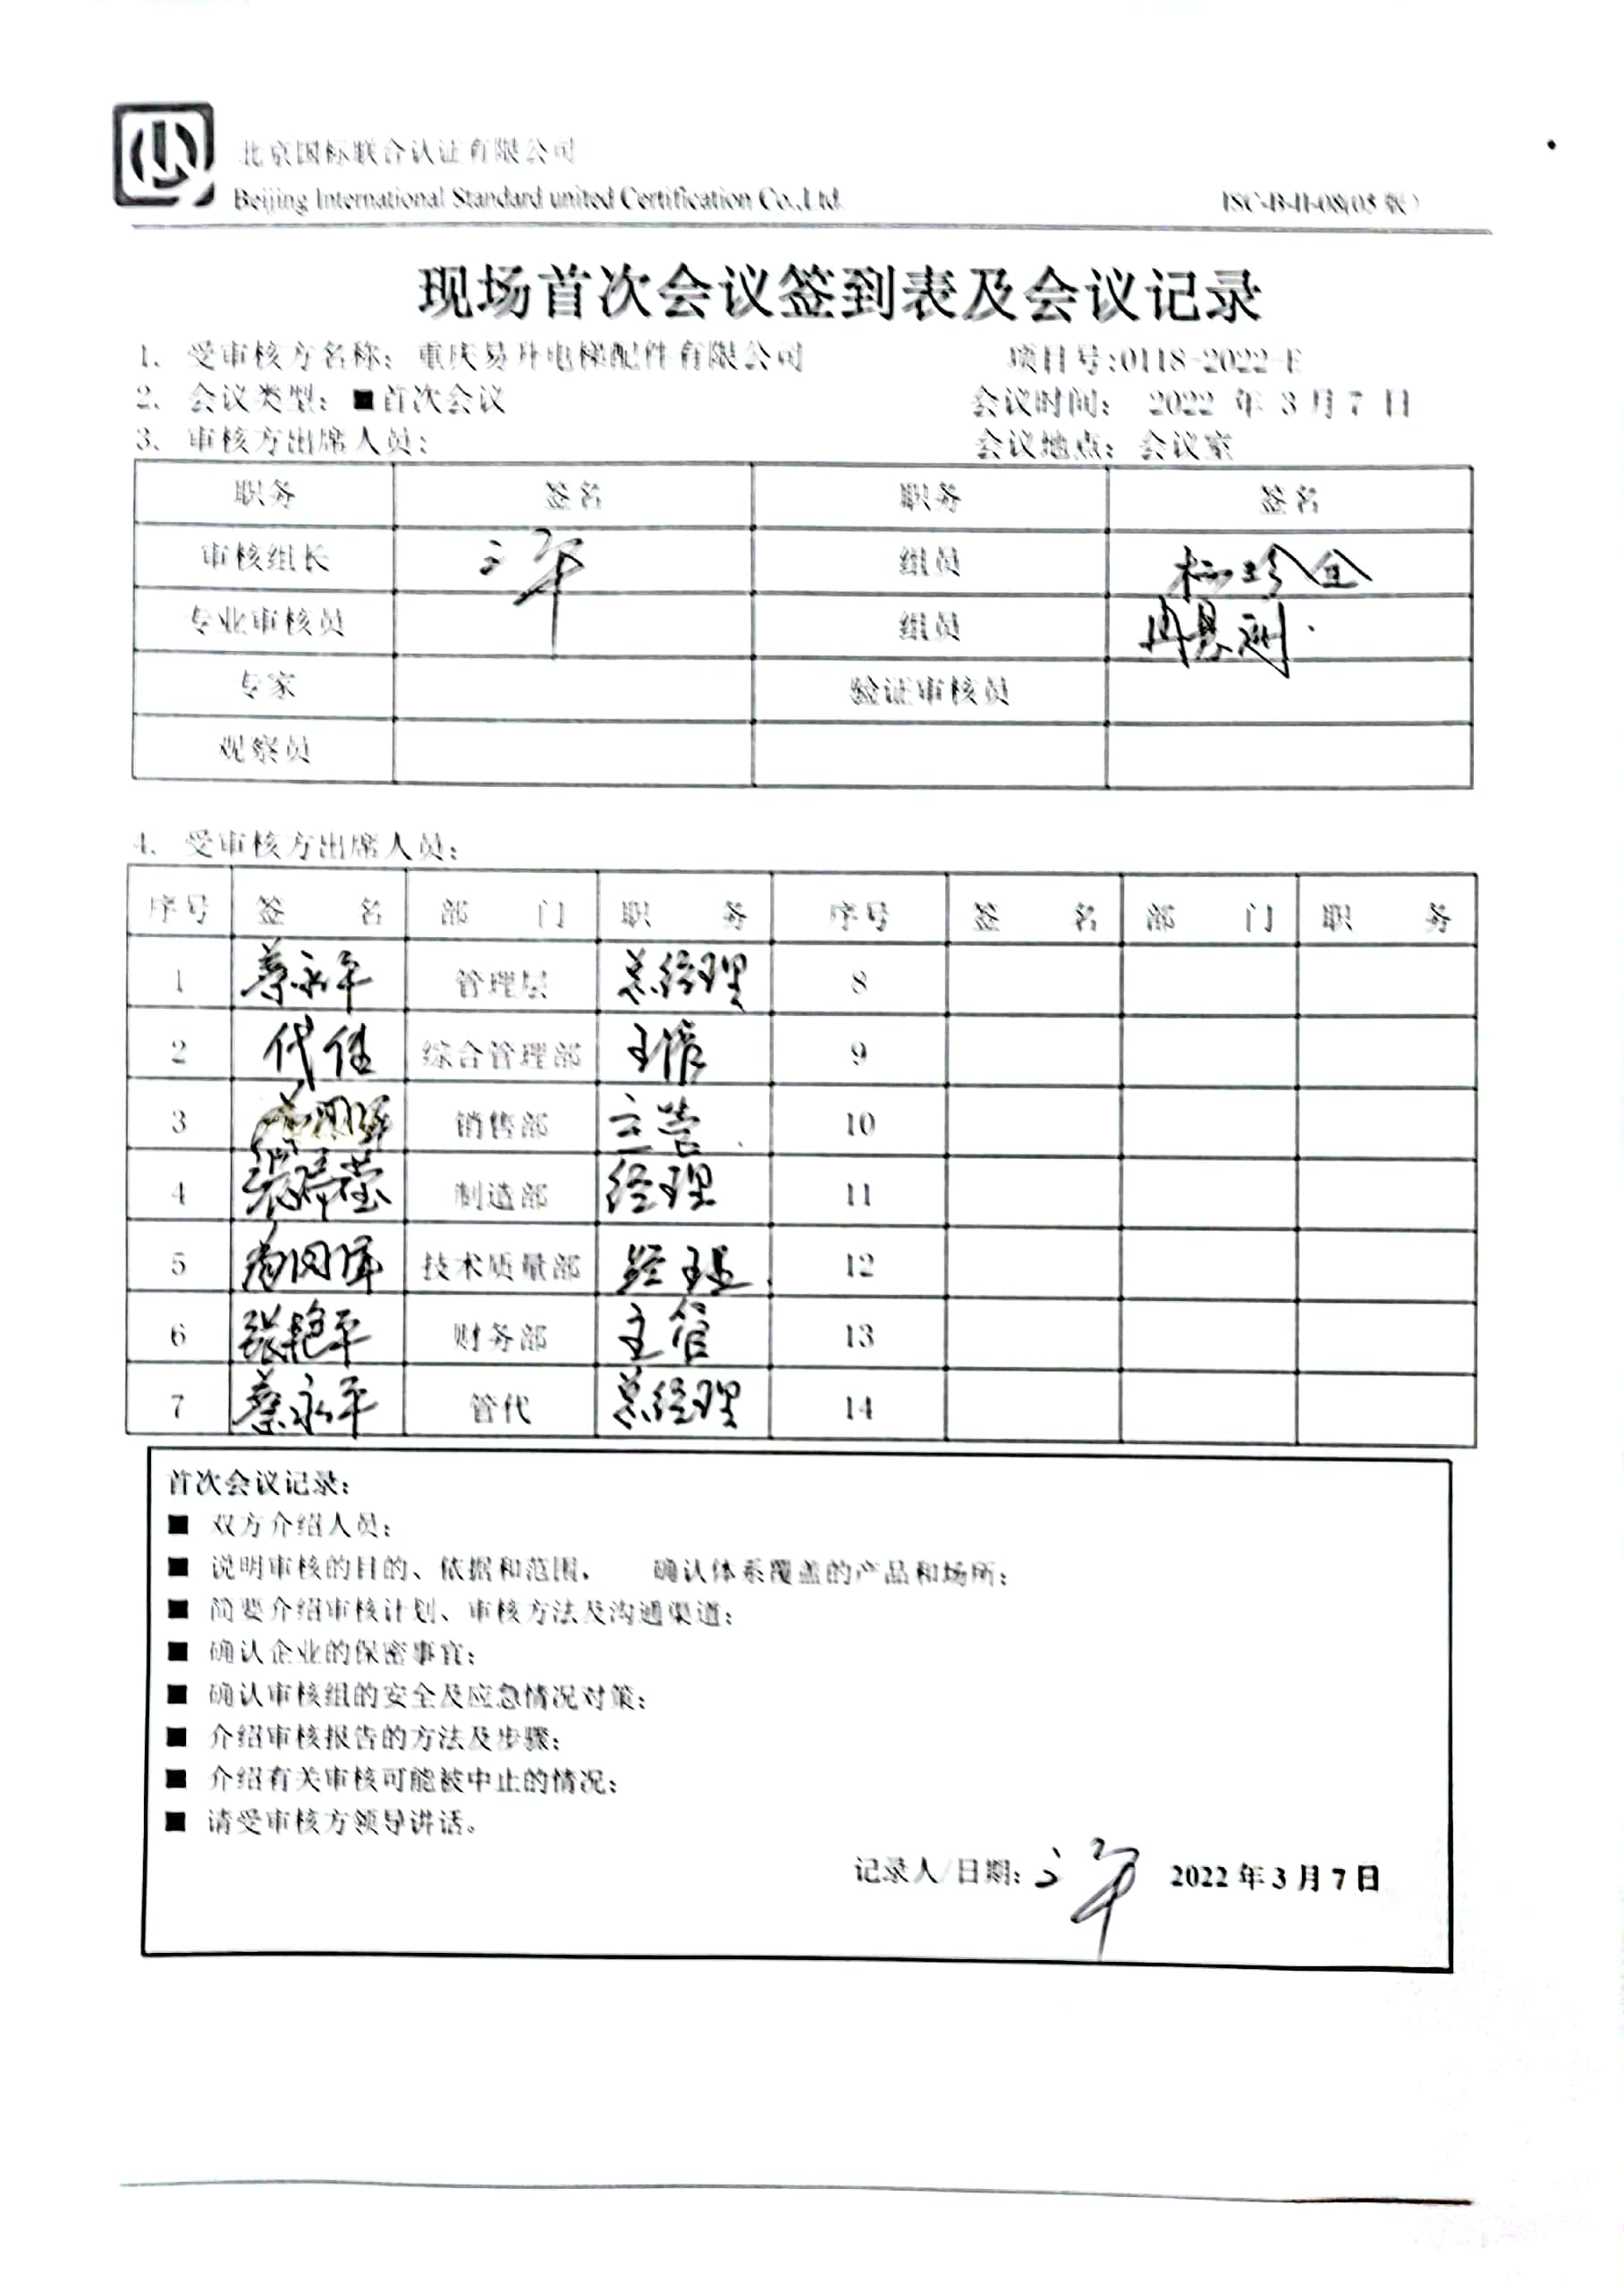 北京国标联合认证有限公司
Beijing International Standard united Certification Co.,Ltd. ISC-B-II-08(05版)
现场首次会议签到表及会议记录
1、受审核方名称：重庆易升电梯配件有限公司 项目号:0118-2022-E
2、会议类型：■首次会议 会议时间： 2022 年 3 月 7 日
3、审核方出席人员： 会议地点：会议室
职务 签名 职务 签名
审核组长 组员
专业审核员 组员
专家 验证审核员
观察员
4、受审核方出席人员：
序号 签 名 部 门 职 务 序号 签 名 部 门 职 务
1 蔡永平 管理层 总经理 8
2 代佳 综合管理部 主管 9
3 销售部 主管 10
4 制造部 经理 11
5 技术质量部 经理 12
6 张艳平 财务部 主管 13
7 蔡永平 管代 总经理 14
首次会议记录：
■ 双方介绍人员；
■ 说明审核的目的、依据和范围， 确认体系覆盖的产品和场所；
■ 简要介绍审核计划、审核方法及沟通渠道；
■ 确认企业的保密事宜；
■ 确认审核组的安全及应急情况对策；
■ 介绍审核报告的方法及步骤；
■ 介绍有关审核可能被中止的情况；
■ 请受审核方领导讲话。
记录人/日期： 2022 年 3 月 7 日